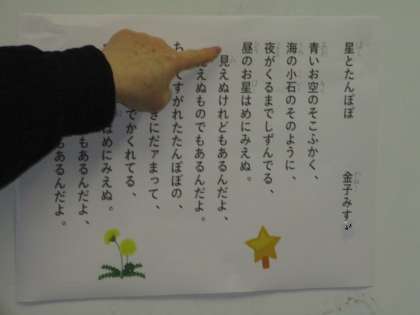 星とたんぽぽ
金子みすゞ
青いお空のそこふかく、
海の小石のそのように、
夜がくるまでしずんでる、
昼のお星はめにみえぬ。
見えぬけれどもあるんだよ、
えぬものでもあるんだよ。
ち てすがれたたんぽぽの、
きにだァまって、
でかくれてる、
はめにみえぬ。
もあるんだよ、
もあるんだよ。